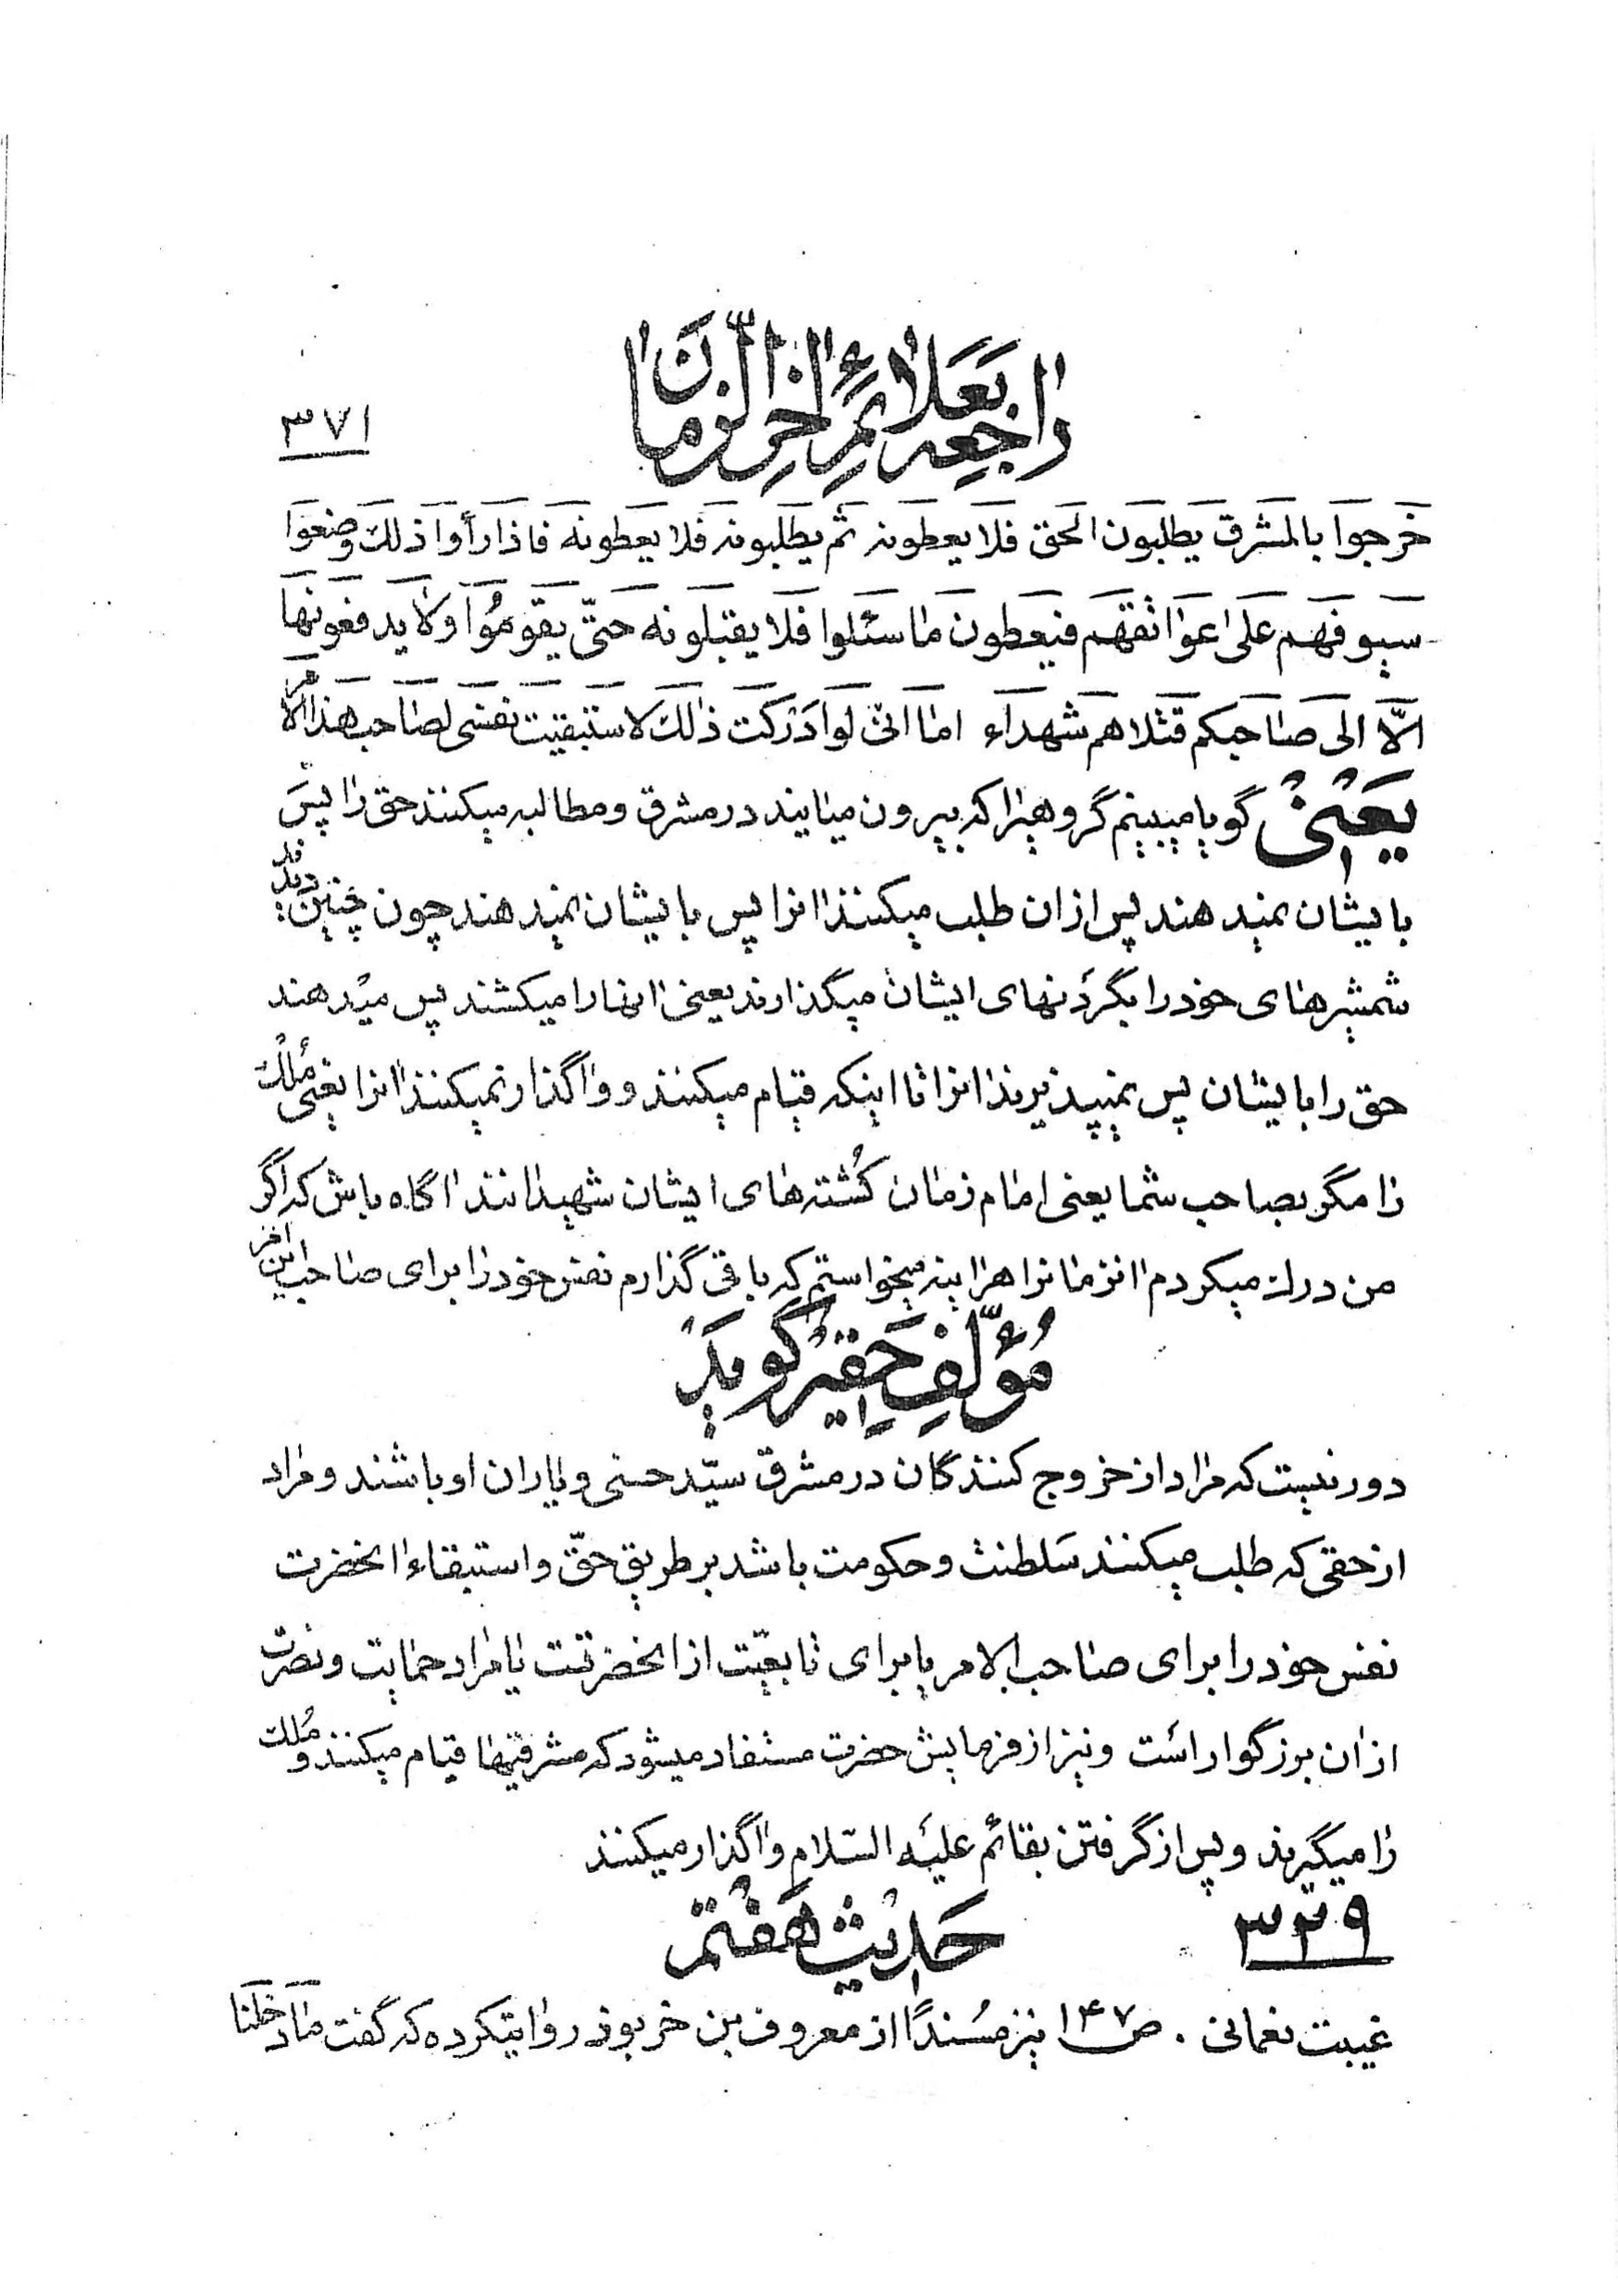 راجعه بعلائم اخر الزمان
۳۷۱
خرجوا بالمشرق يطلبون الحق فلا يعطونه ثم يطلبونه فلا يعطونه فاذا رأوا ذلك وضعوا
سيوفهم على عواتقهم فيعطون ما سئلوا فلا يقبلونه حتّى يقوموا ولا يدفعونها
الّا الى صاحبكم قتلاهم شهداء اما انى لو ادركت ذلك لاستبقيت نفسى لصاحب هذا الامر
يعنى گويا ميبينم گروهيرا كه بيرون ميايند در مشرق و مطالبه ميكنند حق را پس
بايشان نميدهند پس از ان طلب ميكنند انرا پس بايشان نميدهند چون چنين ديدند
شمشيرهاى خود را بگردنهاى ايشان ميگذارند يعنى انها را ميكشند پس ميدهند
حق را بايشان پس نميپذيرند انرا تا اينكه قيام ميكنند و واگذار نميكنند انرا يعنى ملك
را مگر بصاحب شما يعنى امام زمان كُشته هاى ايشان شهيدانند اگاه باش كه اگر
من درك ميكردم انزمانرا هراينه ميخواستم كه باقى گذارم نفس خود را براى صاحب اين امر
مؤلّف حقير گويد
دور نيست كه مراد از خروج كنندگان در مشرق سيّد حسنى و ياران او باشند و مراد
از حقى كه طلب ميكنند سلطنت و حكومت باشد بر طريق حقّ و استبقاء انحضرت
نفس خود را براى صاحب الامر يا براى تابعيّت از انحضرتست يا مراد حمايت و نصرت
از ان بزرگوار است و نيز از فرمايش حضرت مستفاد ميشود كه مشرقيها قيام ميكنند و ملك
را ميگيرند و پس از گرفتن بقائم عليه السّلام واگذار ميكنند
۳۲۹
حديث هفتم
غيبت نعمانى . ص ۱۴۷ نيز مُسندًا از معروف بن خربوذ روايتكرده كه گفت ما دخلنا